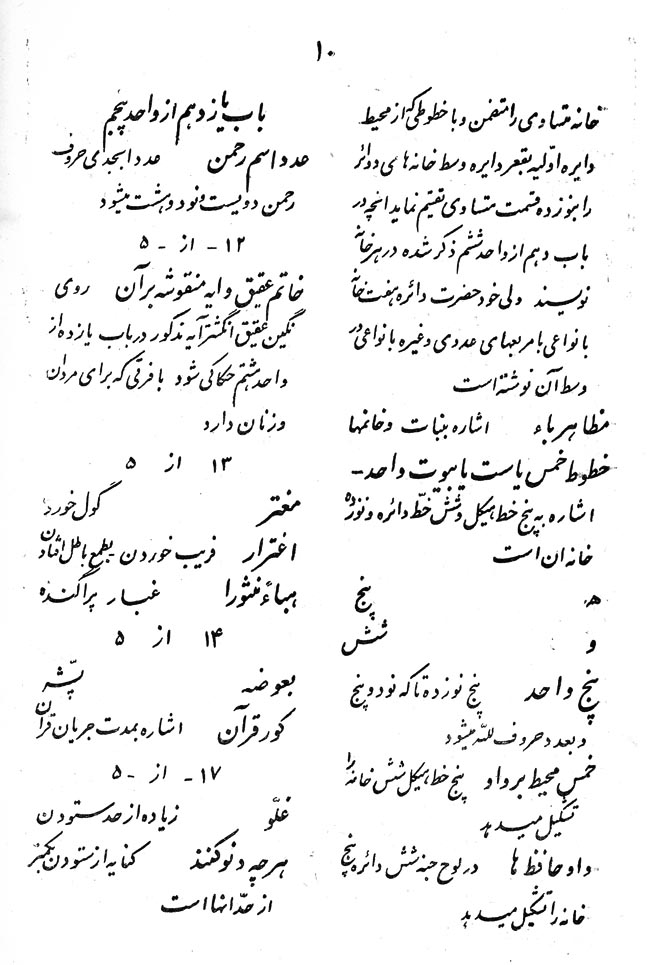 ۱۰
خانه متساوی را متضمن و با خطوطی که از محیط
دایره اوّلیه بقعر دایره وسط خانه های دوائر
را بنوزده قسمت متساوی تقیم نماید آنچه در
باب دهم از واحد ششم ذکر شده در هر خانه
نویسند ولی خود حضرت دائره هفت خانه
با نواعی با مربعهای عددی و غیره با نواعی در
وسط آن نوشته است
مظاهر باء اشاره بنبات و خانمها
خطوط خمس یاست یا بیوت واحد-
اشاره به پنج خط هیکل و شش خطّ دائره و نوزده
خانه ان است
ھ پنج
و شش
پنج واحد پنج نوزده تا که نود و پنج
و بعدد حروف للّه میشود
خمس محیط بر واو پنج خط هیکل شش خانه را
تشکیل میدهد
واو حافظ ها در لوح جنه شش دائره پنج
خانه را تشکیل میدهد
باب یازدهم از واحد پنجم
عدد اسم رحمن عدد ابجدی حروف
رحمن دویست و نود و هشت میشود
۱۲- از -۵
خاتم عقیق و ایه منقوشه بر آن روی
نگین عقیق انگشتر آیه مذکور در باب یازده از
واحد هشتم حکاکی شود با فرقی که برای مردان
و زنان دارد
۱۳ از ۵
مغتر گول خورد
اغترار فریب خوردن بطمع باطل افتادن
هباءً منثورا غبار پراکنده
۱۴ از ۵
بعوضه پشّه
کور قرآن اشاره بمدت جریان قرآن
۱۷- از -۵
غلّو زیاده از حد ستودن
هر چه دنو کنند کنایه از ستودن کمتر
از حدّ انها است